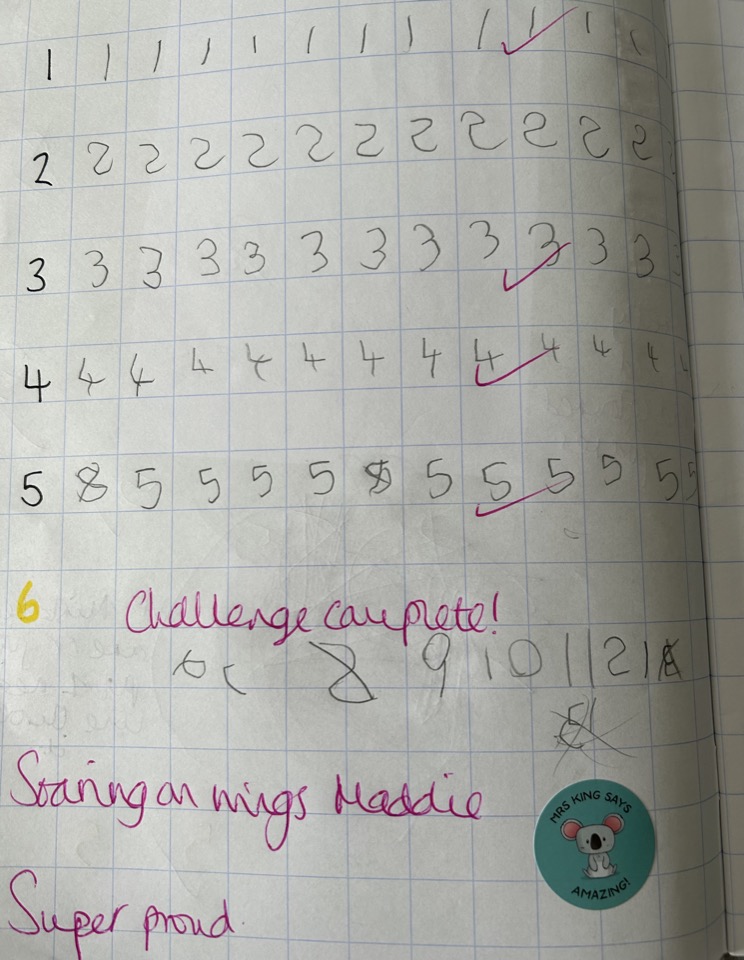 1 1 1 1 1 1 1 1 1 1 1 1
2 2 2 2 2 2 2 2 2 2 2 2
3 3 3 3 3 3 3 3 3 3 3 3
4 4 4 4 4 4 4 4 4 4 4 4
5 8 5 5 5 5 5 5 5 5 5 5 5
6 Challenge complete!
8 9 10 11 21
Soaring on wings Maddie
MRS KING SAYS
AMAZING!
Super proud.